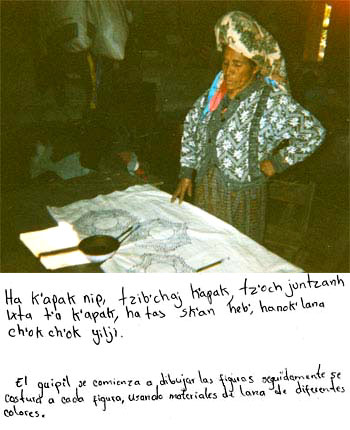 Ha k'apak nip, tzib'chaj k'apak, tz'och juntzanh
ixta t'a k'apak, ha tas sk'an heb', hanok' lana
ch'ok ch'ok yilji.
El guipil se comienza a dibujar las figuras seguidamente se
costura a cada figura, usando materiales de lana de diferentes
colores.